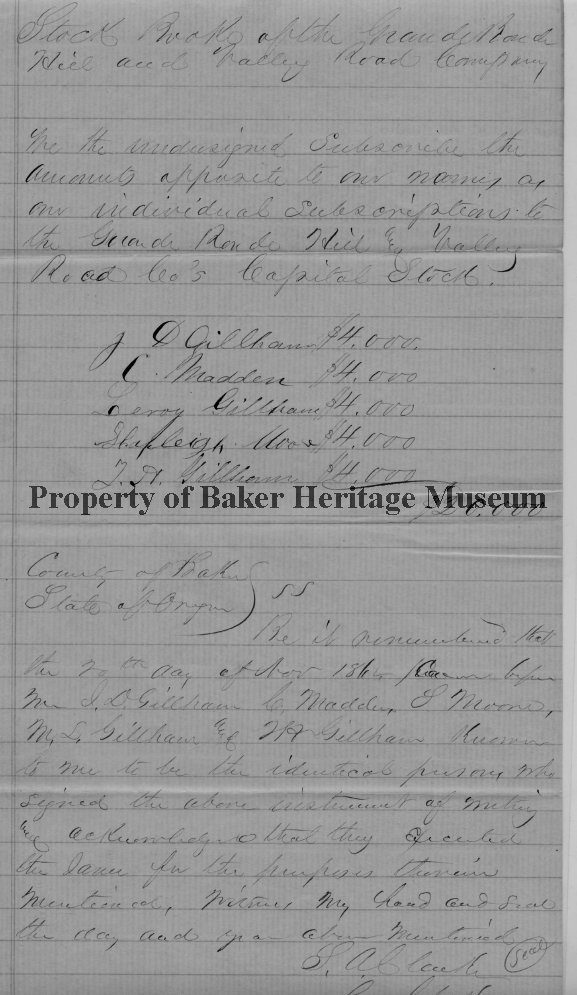 Stock Book of the Grande Ronde
Hill and Valley Road Company
We the undersigned Subscribe the
amounts opposite to our names as
our individual Subscriptions to
the Grande Ronde Hill & Valley
Road Co's Capital Stock.
J D Gillham $4.000.
C. Madden $4.000
Leroy Gillham $4.000
Shepleigh Moore $4.000
T. H. Gillham $4.000
Property of Baker Heritage Museum
$20,000
County of Baker
State of Oregon ss
Be it remembered that
the 20th day of Nov Came before
me J. D. Gillham C. Madden, S Moore,
M. L. Gillham & T H Gillham Known
to me to be the identical persons who
signed the above instrument of writing
and acknowledged that they executed
the same for the purposes therein
mentioned, witness my hand and seal
the day and year above mentioned
S. A. Clarke Seal